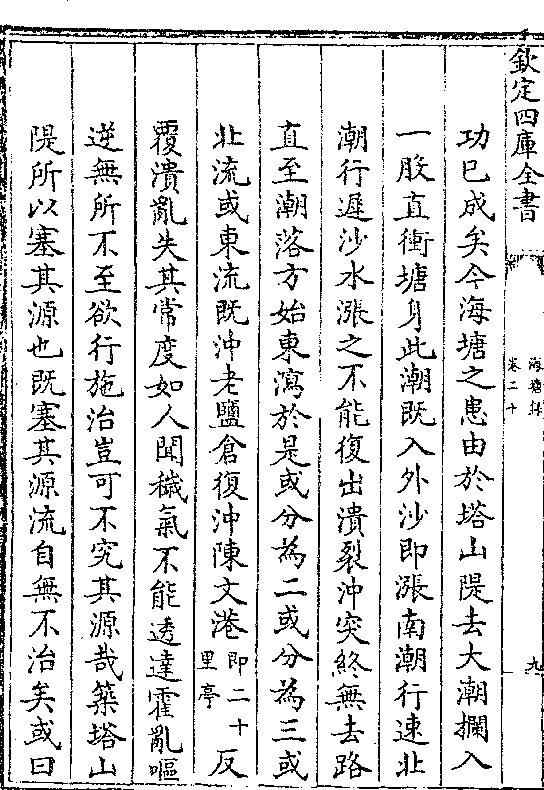 欽定四庫全書
海塘錄
卷二十
九
功已成矣今海塘之患由於塔山隄去大潮攔入
一股直衝塘身此潮既入外沙即漲南潮行速北
潮行遲沙水漲之不能復出潰裂沖突終無去路
直至潮落方始東瀉於是或分為二或分為三或
北流或東流既沖老鹽倉復沖陳文港即二十里亭反
覆潰亂失其常度如人聞穢氣不能透達霍亂嘔
逆無所不至欲行施治豈可不究其源哉築塔山
隄所以塞其源也既塞其源流自無不治矣或曰